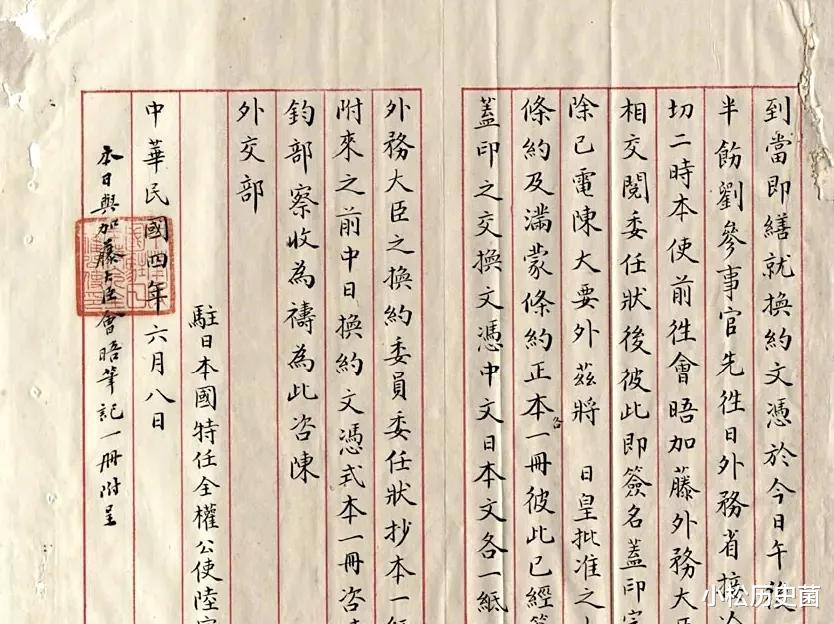 到當即繕就換約文憑於今日午後
半飭劉參事官先徃日外務省接洽
切二時本使前徃會晤加藤外務大臣
相交閱委任狀後彼此即簽名蓋印完
除已電陳大要外茲將 日皇批准之
條約及滿蒙條約正本各一冊彼此已經簽
蓋印之交換文憑中文日本文各一紙
外務大臣之換約委員委任狀抄本一紙
附來之前中日換約文憑式本一冊咨請
鈞部察收為禱為此咨陳
外交部
駐日本國特任全權公使陸宗
中華民國四年六月八日
本日與加藤大臣會晤筆記一冊附呈
小松历史菌